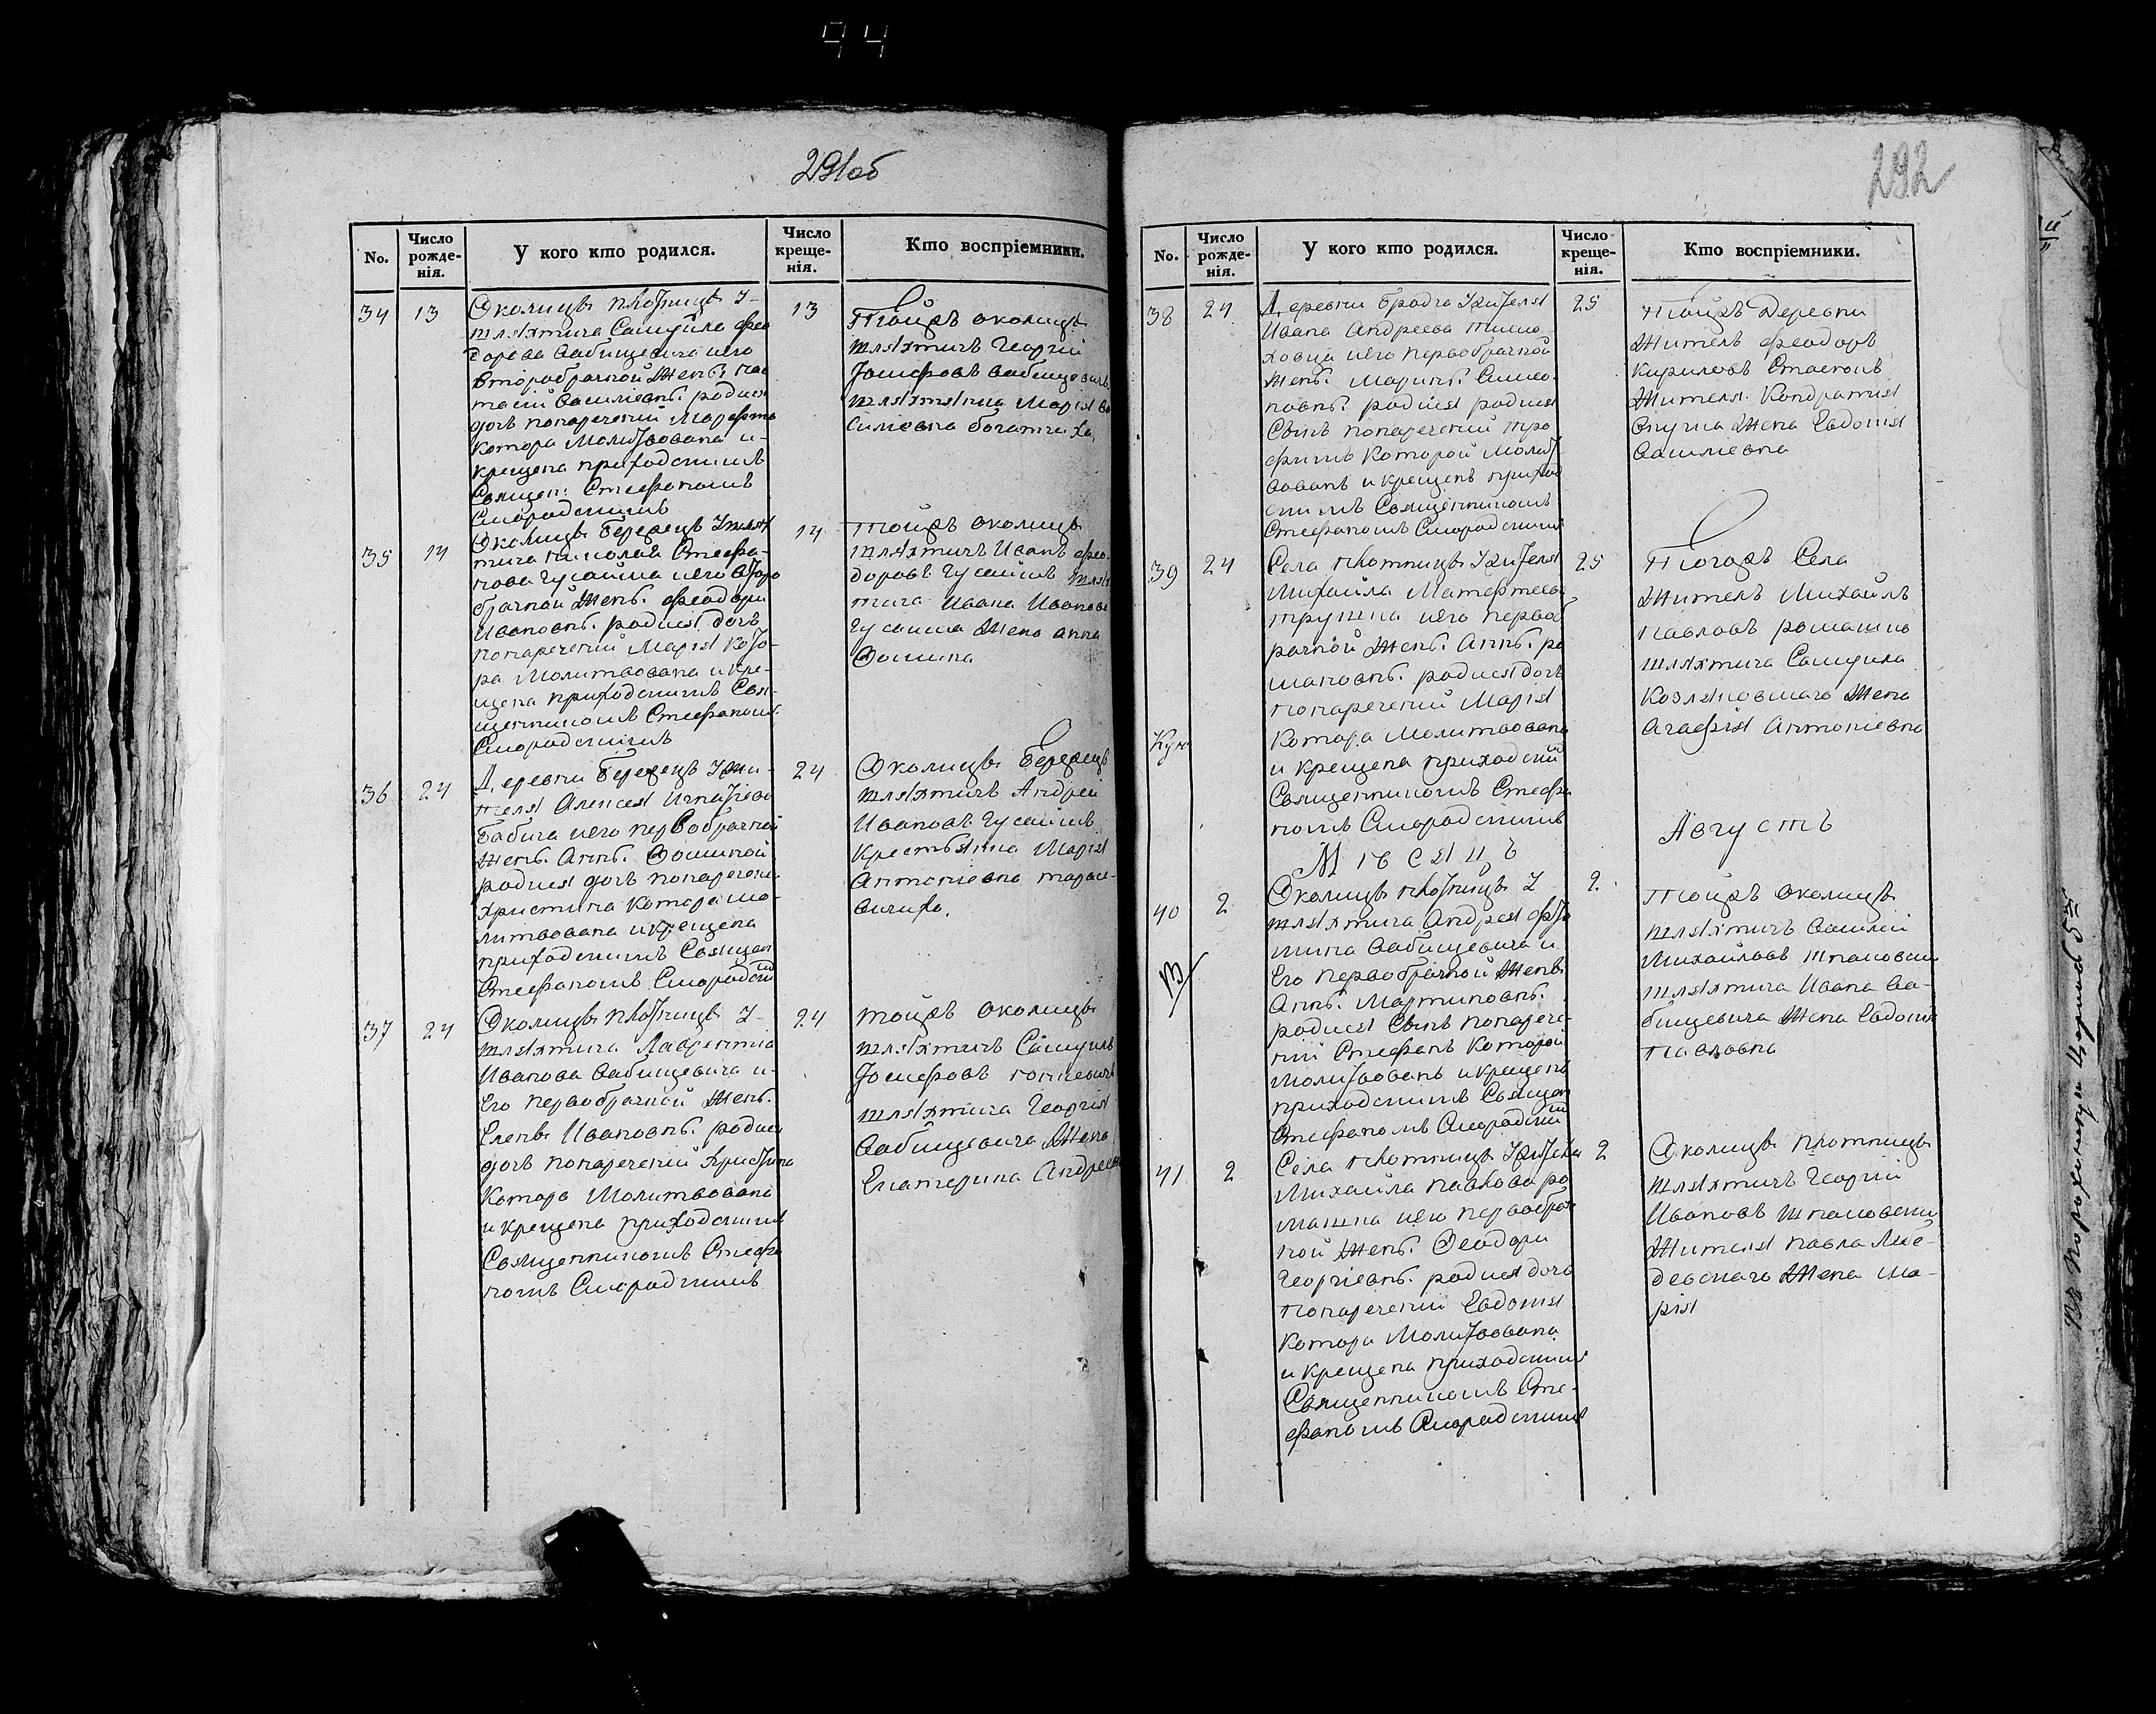 94
291об
No.
Число рожде-нія.
У кого кто родился.
Число креще-нія.
Кто воспріемники.
34
13
Околицы Плотницы У
шляхтича Самуйла Фео
дорова Вабищевича иего
второбрачной Женѣ
Василіевнѣ родися
дочь понареченій Марфта
котора Молитвована и
крещена приходскимъ
Священ: Стефаномъ
Сморадскимъ
13
Тоижъ околицы
шляхтичъ Георгій
Іосифовъ Вабищевичъ
шляхтянка Марія Ва
силіевна
35
14
Околицы Бережцъ Ушлях
тича Николая Стефа-
нова Гусайма иего втро
брачной Женѣ Феодори
Ивановнѣ родися дочь
понареченій Марія Кото-
ра Молитвована икре-
щена приходскимъ Свя-
щенникомъ Стефаномъ
Сморадскимъ
14
Тоижъ околицы
шляхтичъ Иванъ Фео-
доровъ Гусаимъ шлях
тича Ивана Иванова
Гусаима Жена Анна
Фомина
36
24
Деревни Бережцъ Ужи-
теля Алексея Игнатіева
Бабича иего первобрачной
Женѣ Аннѣ Фоминой
родися дочь понаречени
Христина котора мо-
литвована икрещена
приходскимъ Священ
Стефаномъ Сморадски
24
Околицы Бережцъ
шляхтичъ Андрей
Ивановъ Гусаимъ
крестьянка Марія
Антоніевна тарасе-
вичиха.
37
24
Околицы Плотницы У-
шляхтича Лаврентия
Иванова Вабищевича и-
Его первобрачной Женѣ
Еленѣ Ивановнѣ родися
дочь понареченій Христина
Котора Молитвована
и крещена приходскимъ
Священникомъ Стефа
номъ Сморадскимъ
24
тоижъ околицы
шляхтичъ Самуилъ
Іосифовъ
шляхтича Георгія
Вабищевича Жена
Екатерина Андреевна
292
No.
Число рожде-нія.
У кого кто родился.
Число креще-нія.
Кто воспріемники.
38
24
Деревни Бродча Ужителя
Ивана Андреева Тимо-
ховца иего первобрачной
Женѣ Маринѣ Симео-
новнѣ родися родися
Сынъ понареченій тро
фимъ Которой Молит
вованъ и крещенъ приход
скимъ Священникомъ
Стефаномъ Сморадскимъ
25
Тоижъ Деревни
Житель Феодоръ
Кириловъ
Жителя Кондратия
Жена Евдокія
Василіевна
39
24
Села Плотницы Ужителя
Михайла Матфтеева
Трушка иего первоб
рачной Женѣ Аннѣ ро
мановнѣ родися дочь
понареченій Марія
Котора Молитвована
и крещена приходский
Священникомъ Стефа
номъ Сморадскимъ
25
Тогожъ Села
Житель Михайлъ
Павловъ ромашко
шляхтича Самуила
Козляковскаго Жена
Агафія Антоніевна
Мѣсяцъ
Августъ
40
2
Околицы Плотницы У
шляхтича Андрея Фо
мина Вабищевича и
Его первобрачной Женѣ
Аннѣ Мартиновнѣ
родися Сынъ понарече-
ній Стефанъ Которой
Молитвованъ икрещенъ
приходскимъ Священ
Стефаномъ Сморадский
2
Тоижъ околицы
шляхтичъ Василій
Михайловъ Шпаковски
шляхтича Ивана Ва-
бищевича Жена Евдокія
Павловна
41
2
Села Плотницы Ужителя
Михайла Павлова ро
машка иего первобра
ной Женѣ Феодори
Георгіевнѣ родися дочь
понареченій Евдокія
Котора Молитвована
и крещена приходскимъ
Священникомъ Сте-
фаномъ Сморадскимъ
2
Околицы Плотницы
Шляхтичъ Георгій
Ивановъ Шпаковски
Жителя Павла Лие-
девскаго Жена Ма-
рія